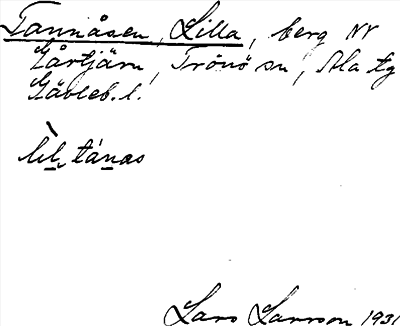 Tannåsen, Lilla, berg NV
Gårtjärn, Trönö sn, Ala tg
Gävleb. l.
lìl tánas
Lars Larsson 1931